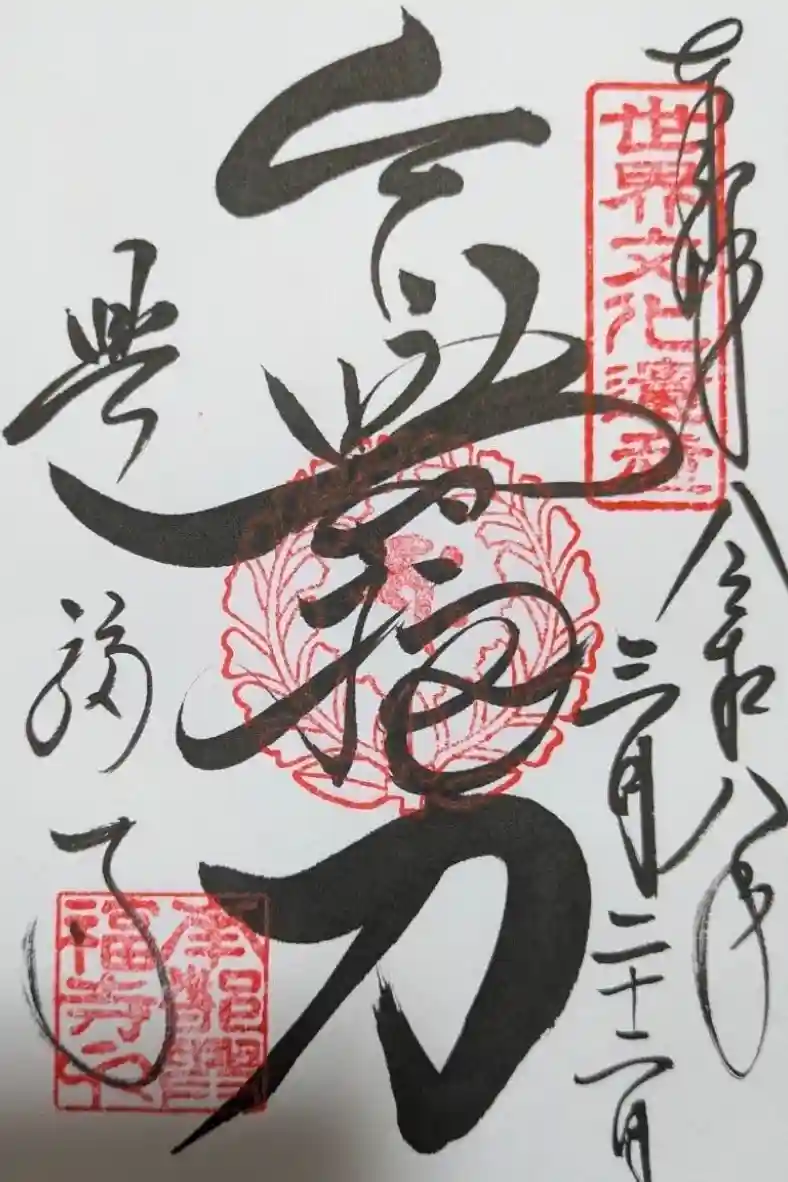 奉拝
令和八年
三月二十二日
世界文化遺産
令興福力
興福寺